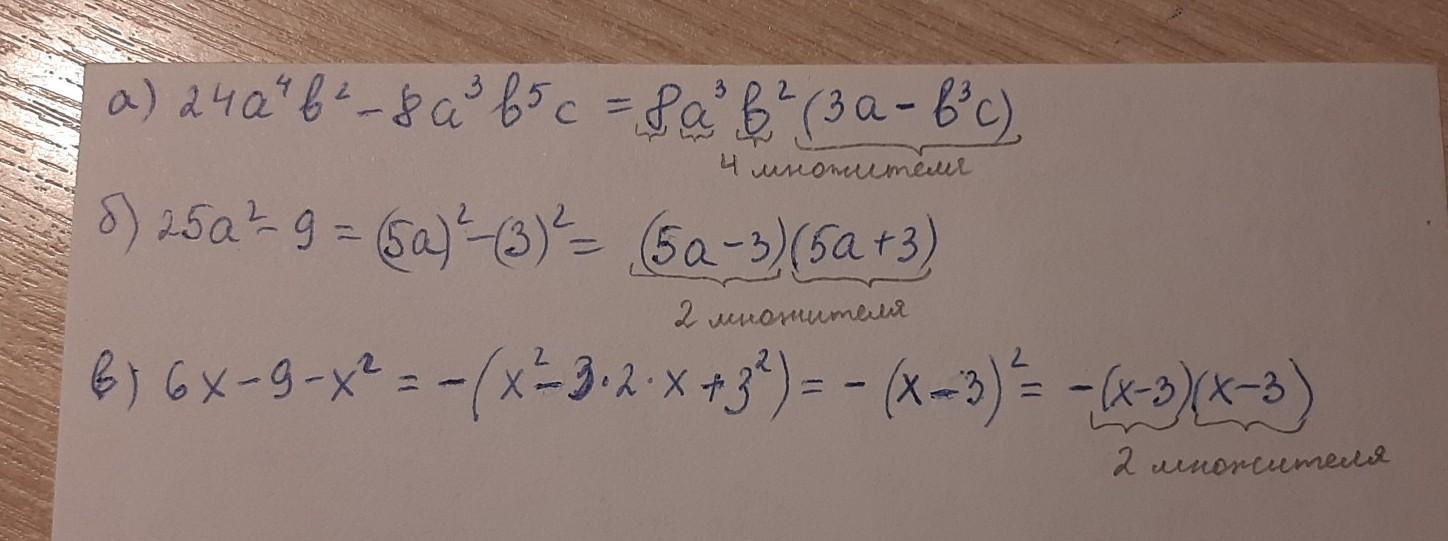 а) 24a⁴b² - 8a³b⁵c = 8a³b²(3a - b³c)
4 множителя
б) 25a² - 9 = (5a)² - (3)² = (5a - 3)(5a + 3)
2 множителя
в) 6x - 9 - x² = -(x² - 3·2·x + 3²) = -(x - 3)² = -(x - 3)(x - 3)
2 множителя